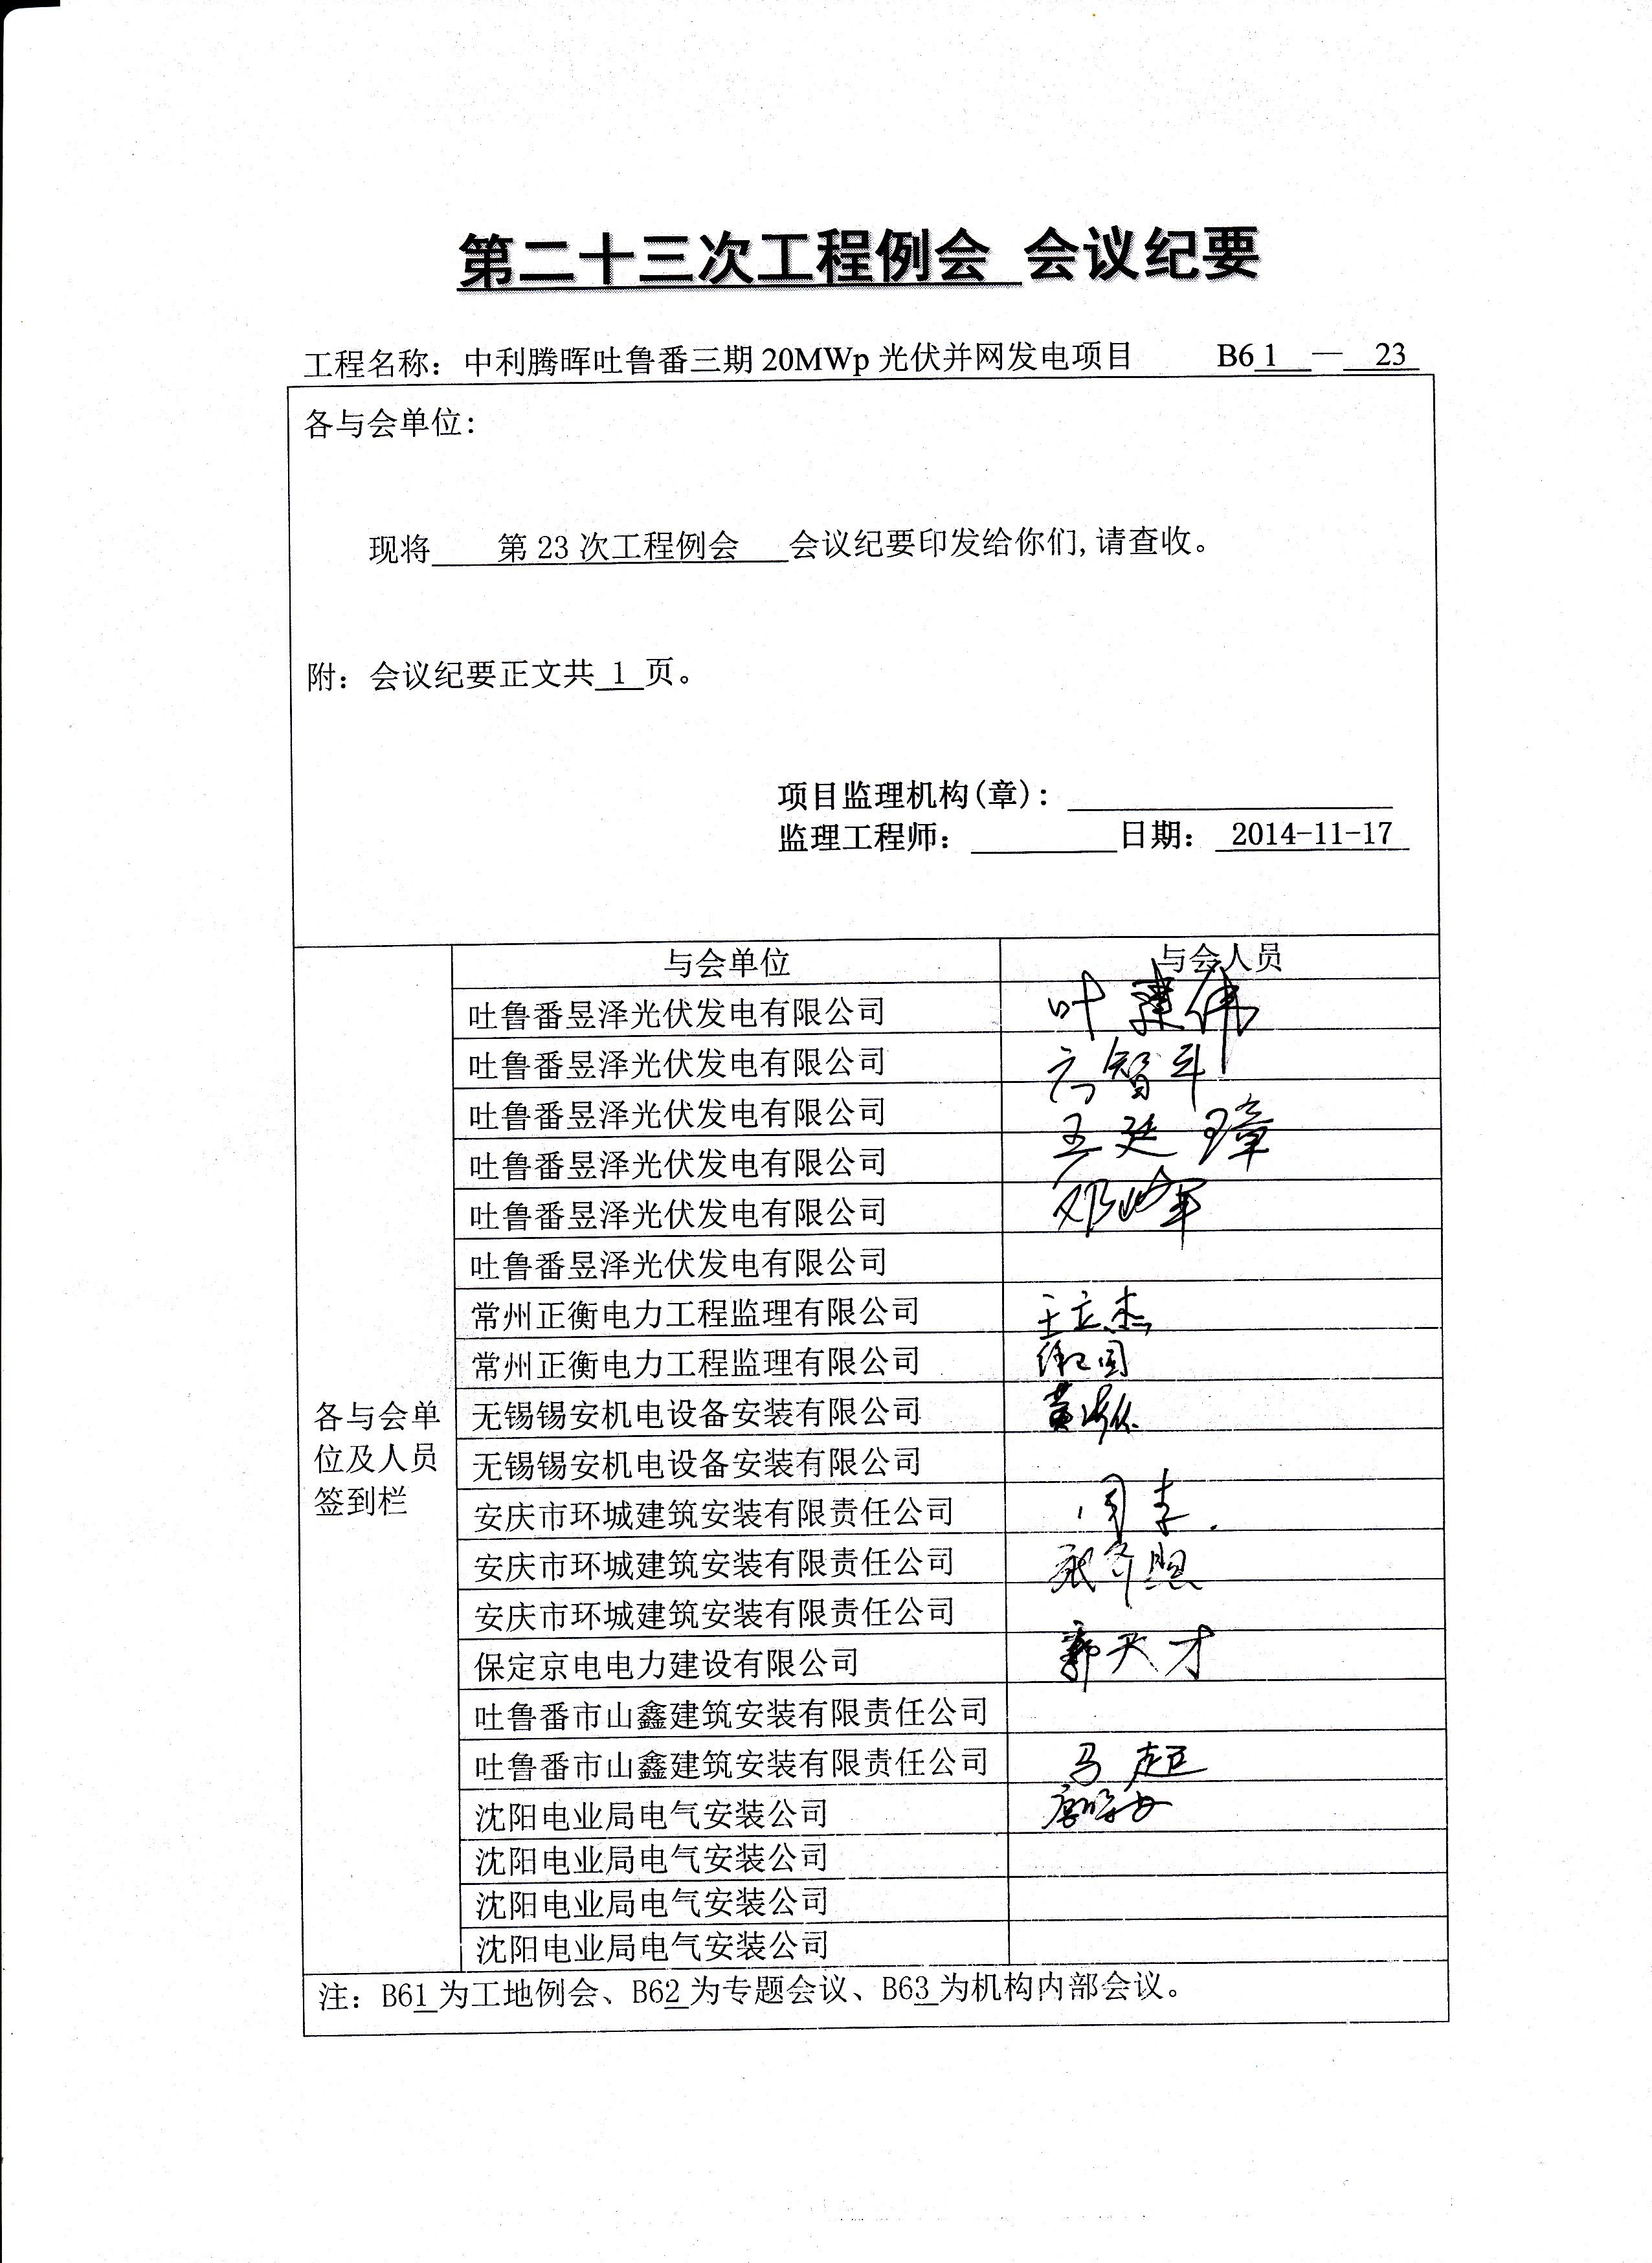 第二十三次工程例会 会议纪要
工程名称：中利腾晖吐鲁番三期 20MWp 光伏并网发电项目 B61 — 23
各与会单位:
现将 第 23 次工程例会 会议纪要印发给你们,请查收。
附：会议纪要正文共 1 页。
项目监理机构(章)：
监理工程师： 日期： 2014-11-17
与会单位 与会人员
吐鲁番昱泽光伏发电有限公司 叶建伟
吐鲁番昱泽光伏发电有限公司 高智斗
吐鲁番昱泽光伏发电有限公司
吐鲁番昱泽光伏发电有限公司 王廷璋
吐鲁番昱泽光伏发电有限公司 邓岭军
吐鲁番昱泽光伏发电有限公司
常州正衡电力工程监理有限公司 王立杰
常州正衡电力工程监理有限公司
无锡锡安机电设备安装有限公司 黄
无锡锡安机电设备安装有限公司
安庆市环城建筑安装有限责任公司 周李
安庆市环城建筑安装有限责任公司
安庆市环城建筑安装有限责任公司
保定京电电力建设有限公司 郭天才
吐鲁番市山鑫建筑安装有限责任公司
吐鲁番市山鑫建筑安装有限责任公司 马超
沈阳电业局电气安装公司
沈阳电业局电气安装公司
沈阳电业局电气安装公司
沈阳电业局电气安装公司
各与会单
位及人员
签到栏
注：B61 为工地例会、B62 为专题会议、B63 为机构内部会议。